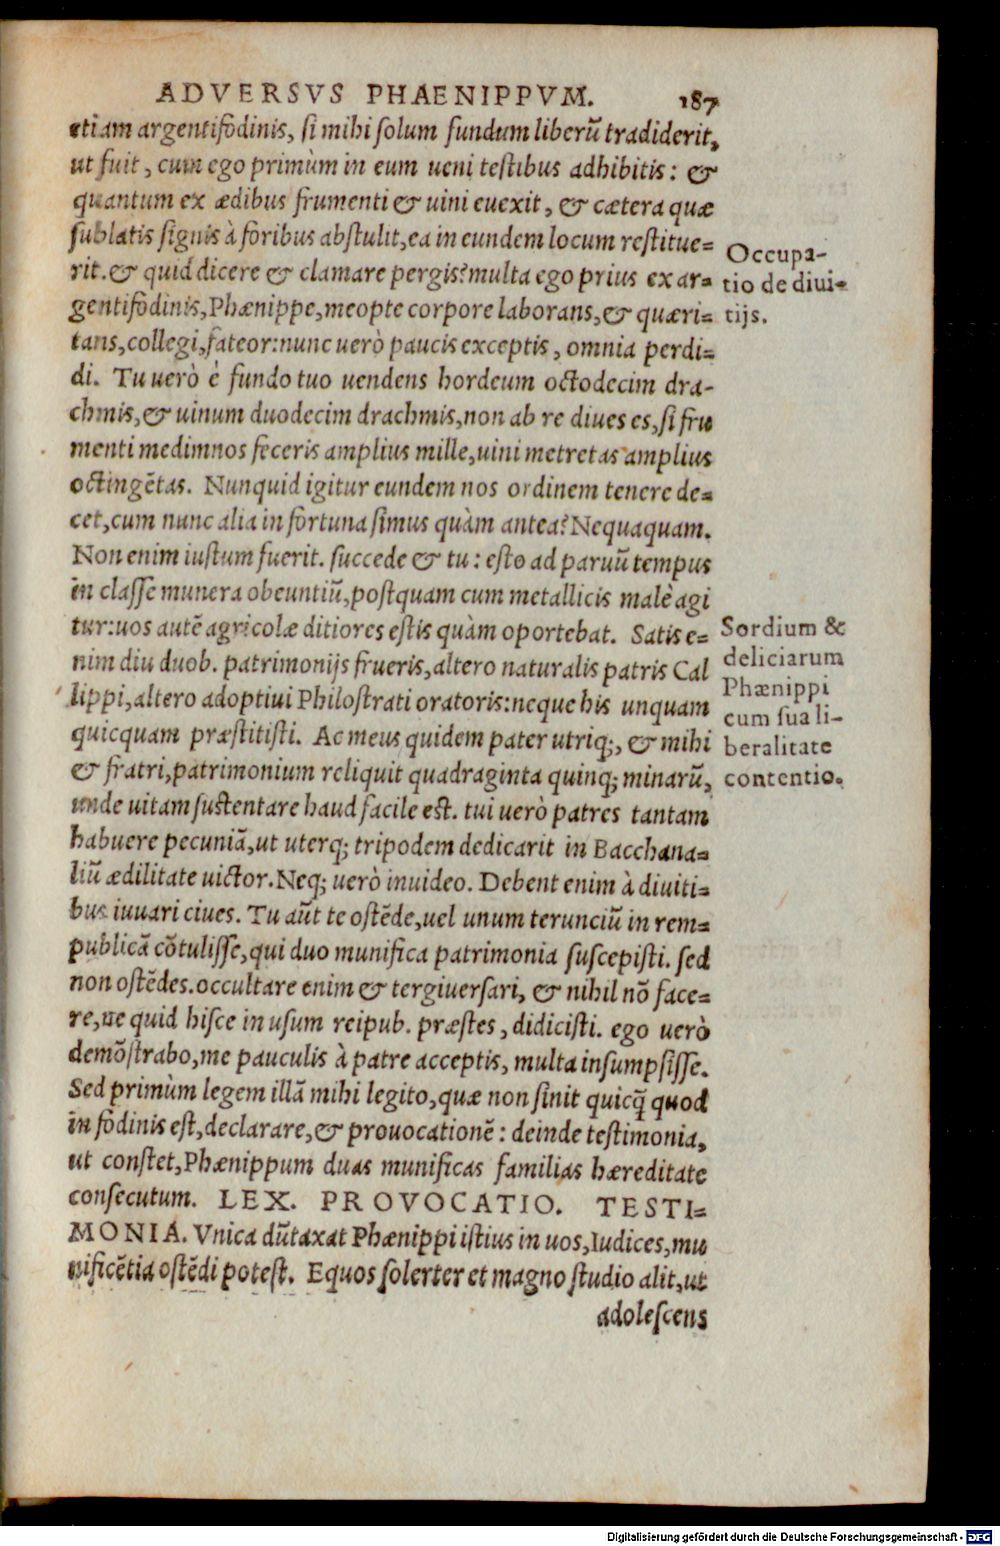 ADVERSVS PHAENIPPVM. 187
etiam argentifodinis, si mihi solum fundum liberū tradiderit,
ut fuit, cum ego primùm in eum ueni testibus adhibitis: &
quantum ex ædibus frumenti & uini euexit, & cætera quæ
sublatis signis à foribus abstulit, ea in eundem locum restitue=
rit. & quid dicere & clamare pergis? multa ego prius ex ar=
gentifodinis, Phænippe, meopte corpore laborans, & quæri=
tans, collegi, fateor: nunc uerò paucis exceptis, omnia perdi=
di. Tu uerò è fundo tuo uendens hordeum octodecim dra-
chmis, & uinum duodecim drachmis, non ab re diues es, si fru
menti medimnos feceris amplius mille, uini metretas amplius
octingētas. Nunquid igitur eundem nos ordinem tenere de=
cet, cum nunc alia in fortuna simus quàm antea? Nequaquam.
Non enim iustum fuerit. succede & tu: esto ad paruū tempus
in classe munera obeuntiū, postquam cum metallicis malè agi
tur: uos autē agricolæ ditiores estis quàm oportebat. Satis e=
nim diu duob. patrimonijs frueris, altero naturalis patris Cal
lippi, altero adoptiui Philostrati oratoris: neque his unquam
quicquam præstitisti. Ac meus quidem pater utriq;, & mihi
& fratri, patrimonium reliquit quadraginta quinq; minarū,
unde uitam sustentare haud facile est. tui uerò patres tantam
habuere pecuniā, ut uterq; tripodem dedicarit in Bacchana=
liū ædilitate uictor. Neq; uerò inuideo. Debent enim à diuiti=
bus iuuari ciues. Tu aūt te ostēde, uel unum terunciū in rem=
publicā cōtulisse, qui duo munifica patrimonia suscepisti. sed
non ostēdes. occultare enim & tergiuersari, & nihil nō face=
re, ne quid hisce in usum reipub. præstes, didicisti. ego uerò
demōstrabo, me pauculis à patre acceptis, multa insumpsisse.
Sed primùm legem illā mihi legito, quæ non sinit quicq̄ quod
in fodinis est, declarare, & prouocationē: deinde testimonia,
ut constet, Phænippum duas munificas familias hæreditate
consecutum. LEX. PROVOCATIO. TESTI=
MONIA. Vnica dūtaxat Phænippi istius in uos, Iudices, mu
nificētia ostēdi potest. Equos solerter et magno studio alit, ut
adolescens
Occupa-
tio de diui-
tijs.
Sordium &
deliciarum
Phænippi
cum sua li-
beralitate
contentio.
Digitalisierung gefördert durch die Deutsche Forschungsgemeinschaft - DFG